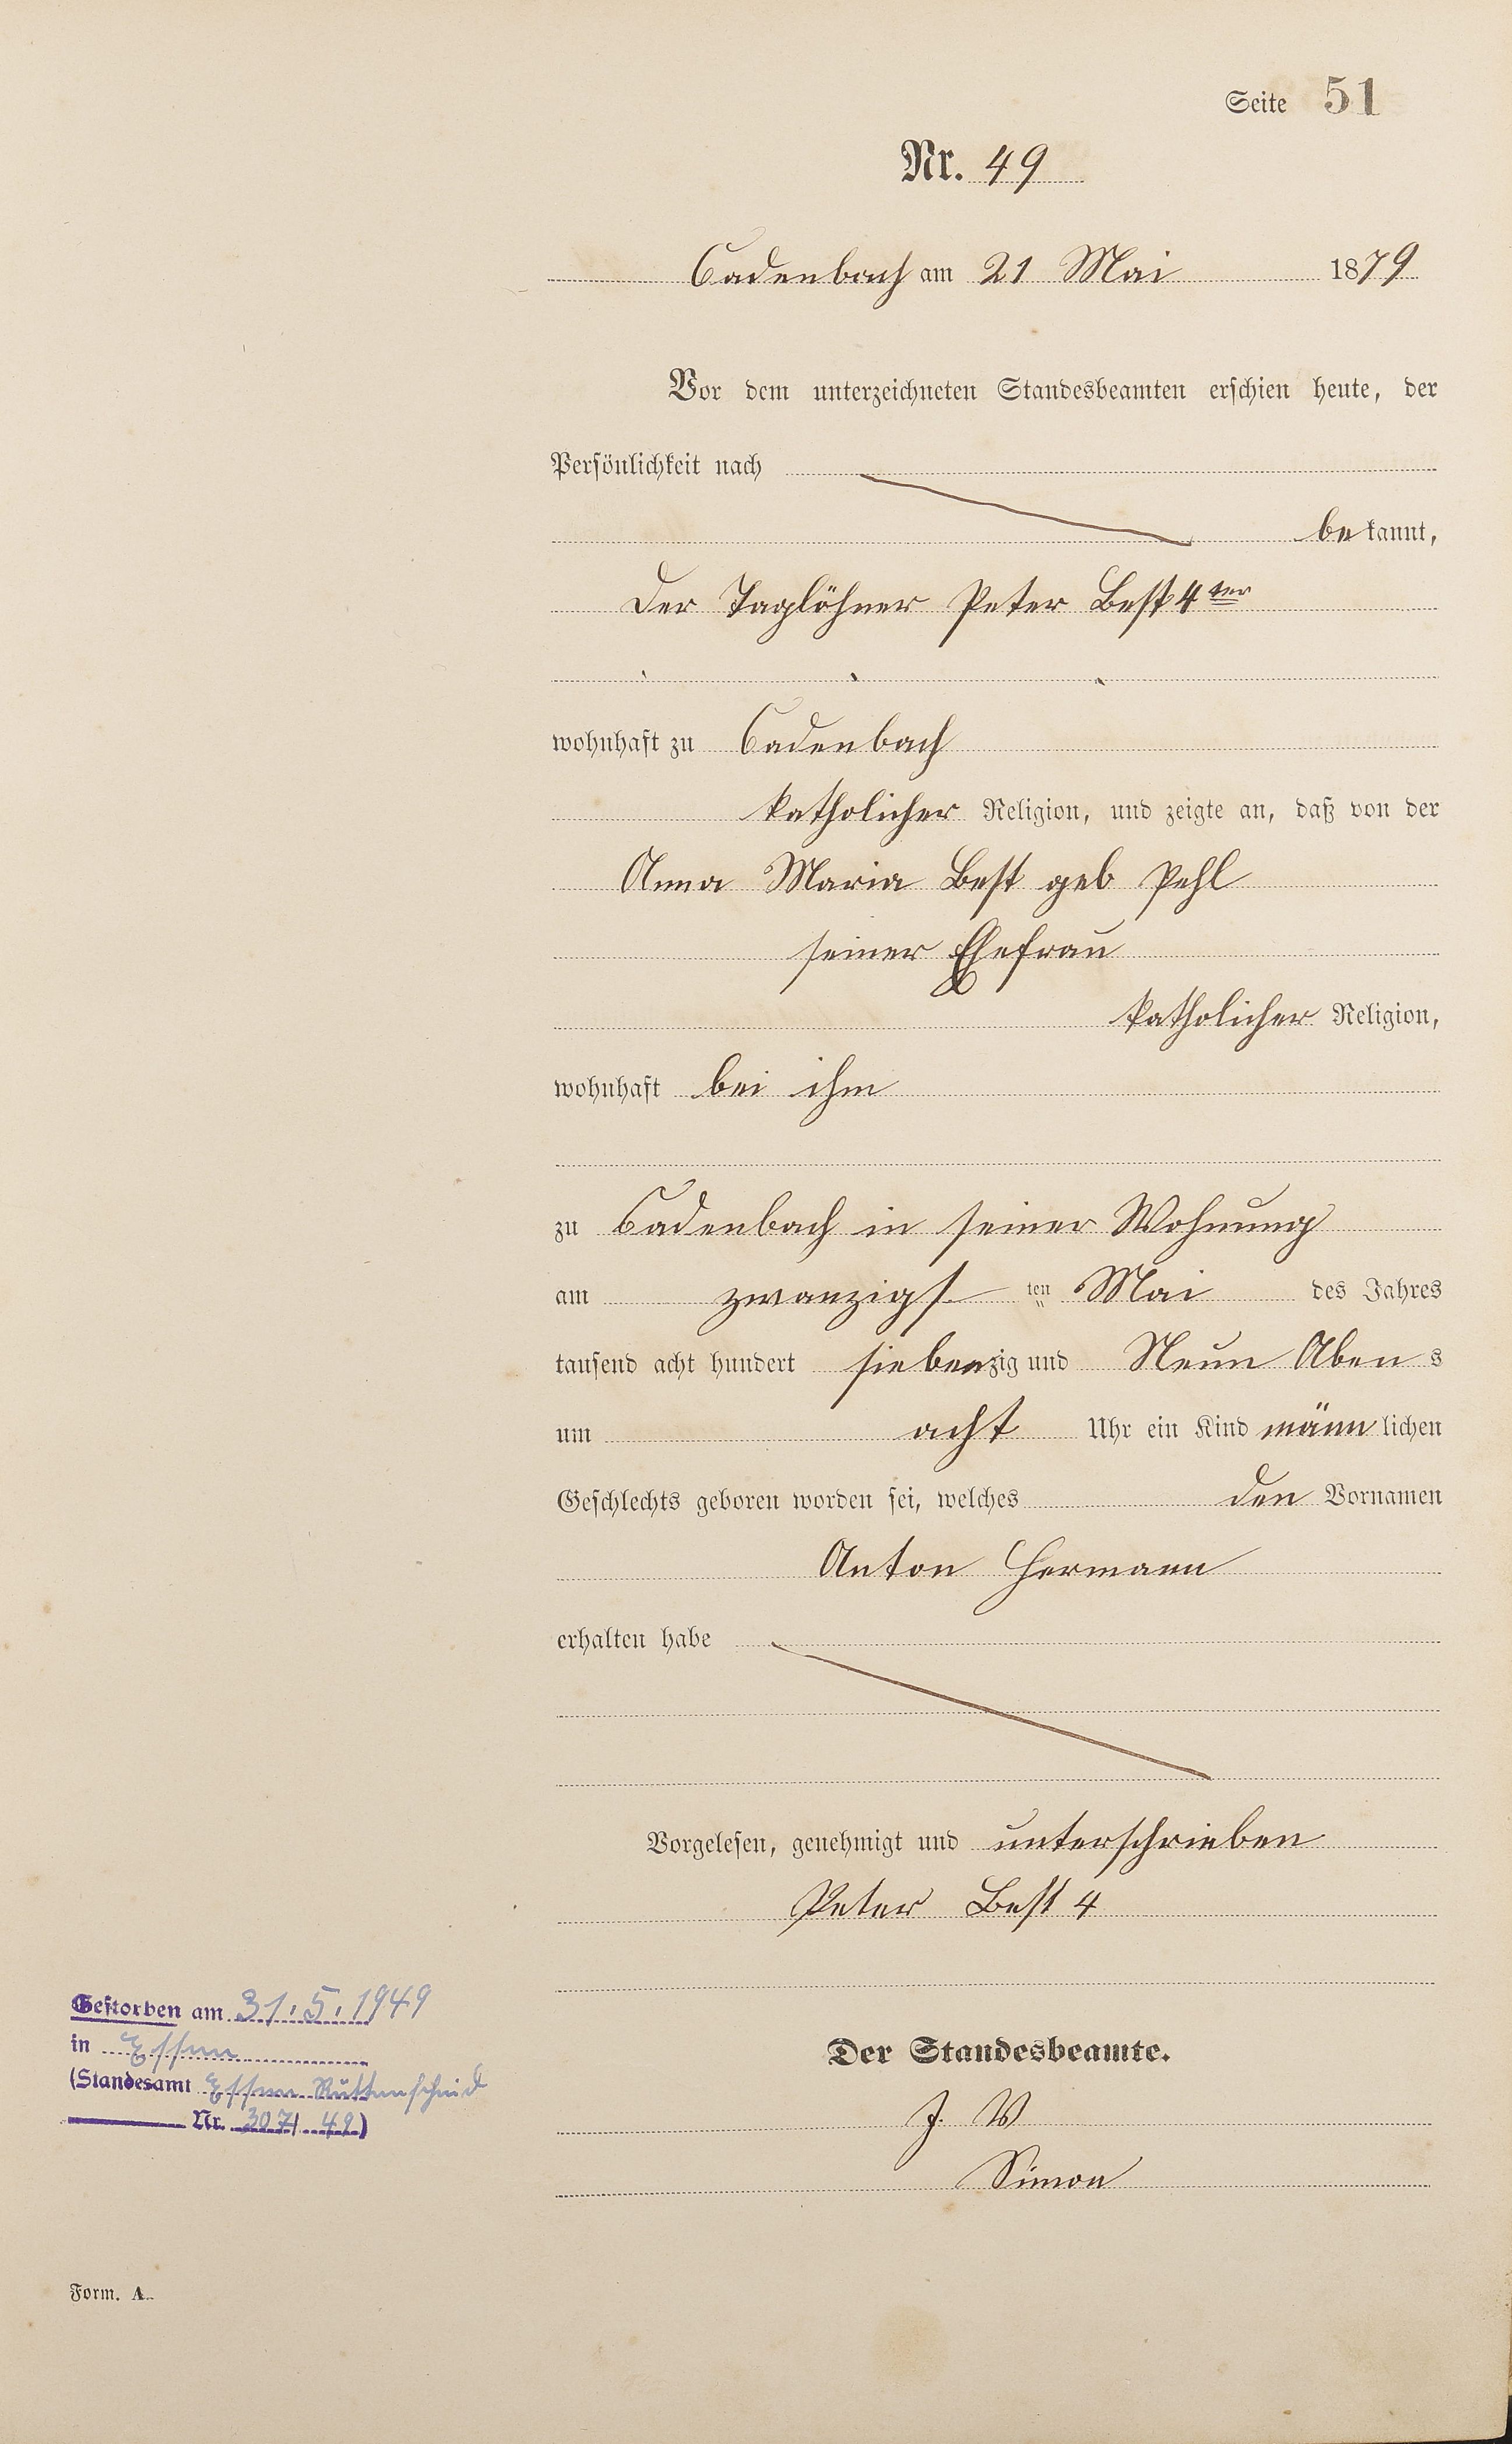 Seite 51
Nr. 49
Cadenbach am 21 Mai 1879
Vor dem unterzeichneten Standesbeamten erschien heute, der
Persönlichkeit nach
bekannt,
Der Taglöhner Peter Best 4ter
wohnhaft zu Cadenbach
katholicher Religion, und zeigte an, daß von der
Anna Maria Best geb Pehl
seiner Ehefrau
katholicher Religion,
wohnhaft bei ihm
zu Cadenbach in seiner Wohnung
am zwanzigsten Mai des Jahres
tausend acht hundert siebenzig und Neun Abens
um acht Uhr ein Kind männlichen
Geschlechts geboren worden sei, welches den Vornamen
Anton Hermann
erhalten habe
Vorgelesen, genehmigt und unterschrieben
Peter Best 4
Gestorben am 31.5.1949
in Essen
(Standesamt Essen Rüttenscheid
Nr. 307/49)
Der Standesbeamte.
J. V
Simon
Form. A.